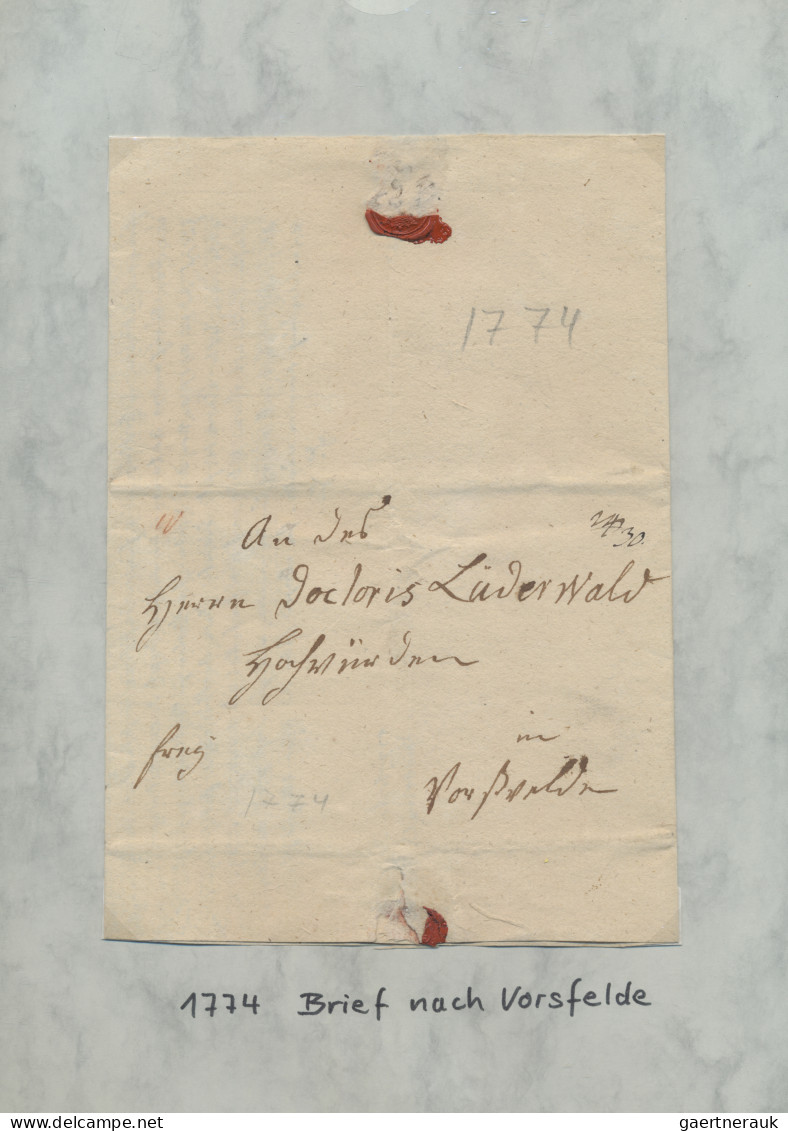 1774
An des
Herrn Doctoris Lüderwald
Hochwürden
frey
in
Vorßvelde
1774
1774 Brief nach Vorsfelde
www.delcampe.net
gaertnerauk